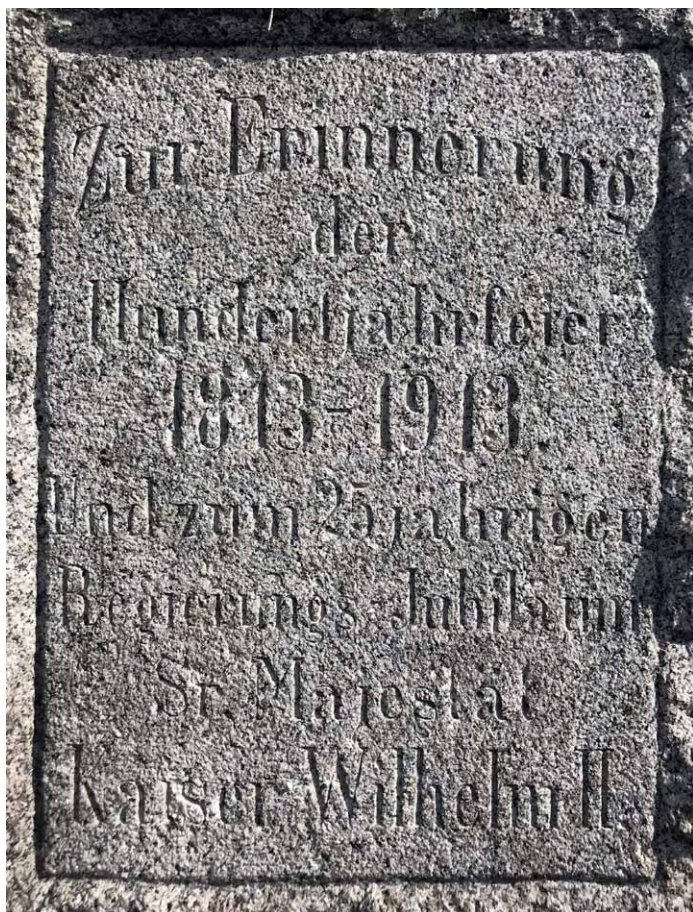 Zur Erinnerung
der
Hundertjahrfeier
1813-1913.
Und zum 25 jährigen
Regierungs Jubiläum
Sr. Majestät
Kaiser Wilhelm II.